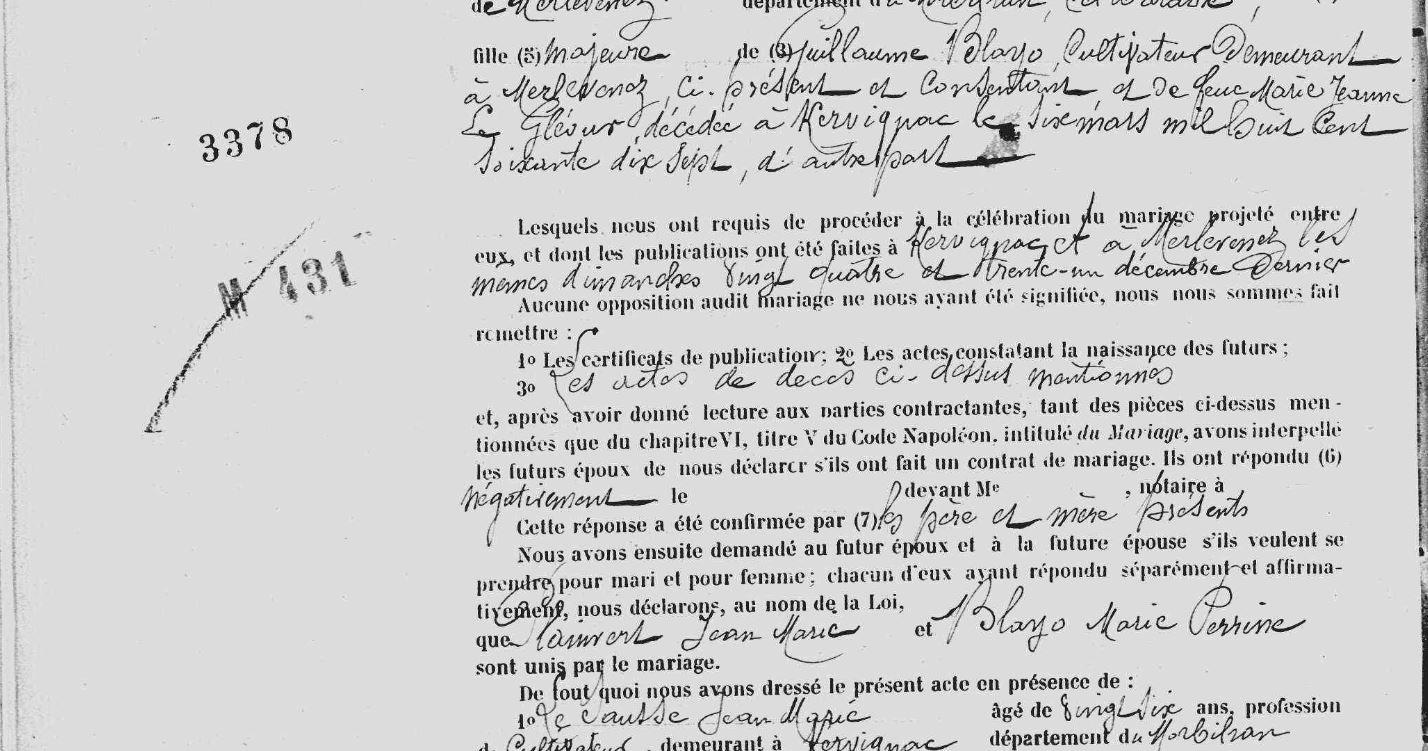 de Merlevenez département du Morbihan,
fille (5) majeure de (3) Guillaume Blayo, Cultivateur Demeurant
à Merlevenez, ci-présent et consentant et de feue Marie Jeanne
Le Gléour décédée à Kervignac le six mars mil huit cent
soixante dix sept, d'autre part
3378
Lesquels nous ont requis de procéder à la célébration du mariage projeté entre
eux, et dont les publications ont été faites à Kervignac et à Merlevenez les
mêmes dimanches vingt quatre et trente-un décembre Dernier
M 431
Aucune opposition audit mariage ne nous ayant été signifiée, nous nous sommes fait
remettre :
1o Les certificats de publication; 2o Les actes constatant la naissance des futurs;
3o Les actes de décès ci-dessus mentionnés
et, après avoir donné lecture aux parties contractantes, tant des pièces ci-dessus men-
tionnées que du chapitre VI, titre V du Code Napoléon, intitulé du Mariage, avons interpellé
les futurs époux de nous déclarer s'ils ont fait un contrat de mariage. Ils ont répondu (6)
négativement le devant Me , notaire à
Cette réponse a été confirmée par (7) les père et mère présents
Nous avons ensuite demandé au futur époux et à la future épouse s'ils veulent se
prendre pour mari et pour femme; chacun d'eux ayant répondu séparément et affirma-
tivement, nous déclarons, au nom de la Loi,
que Jean Marie et Blayo Marie Perrine
sont unis par le mariage.
De tout quoi nous avons dressé le présent acte en présence de :
1o Le Sausse Jean Marie âgé de vingt six ans, profession
de Cultivateur, demeurant à Kervignac département du Morbihan